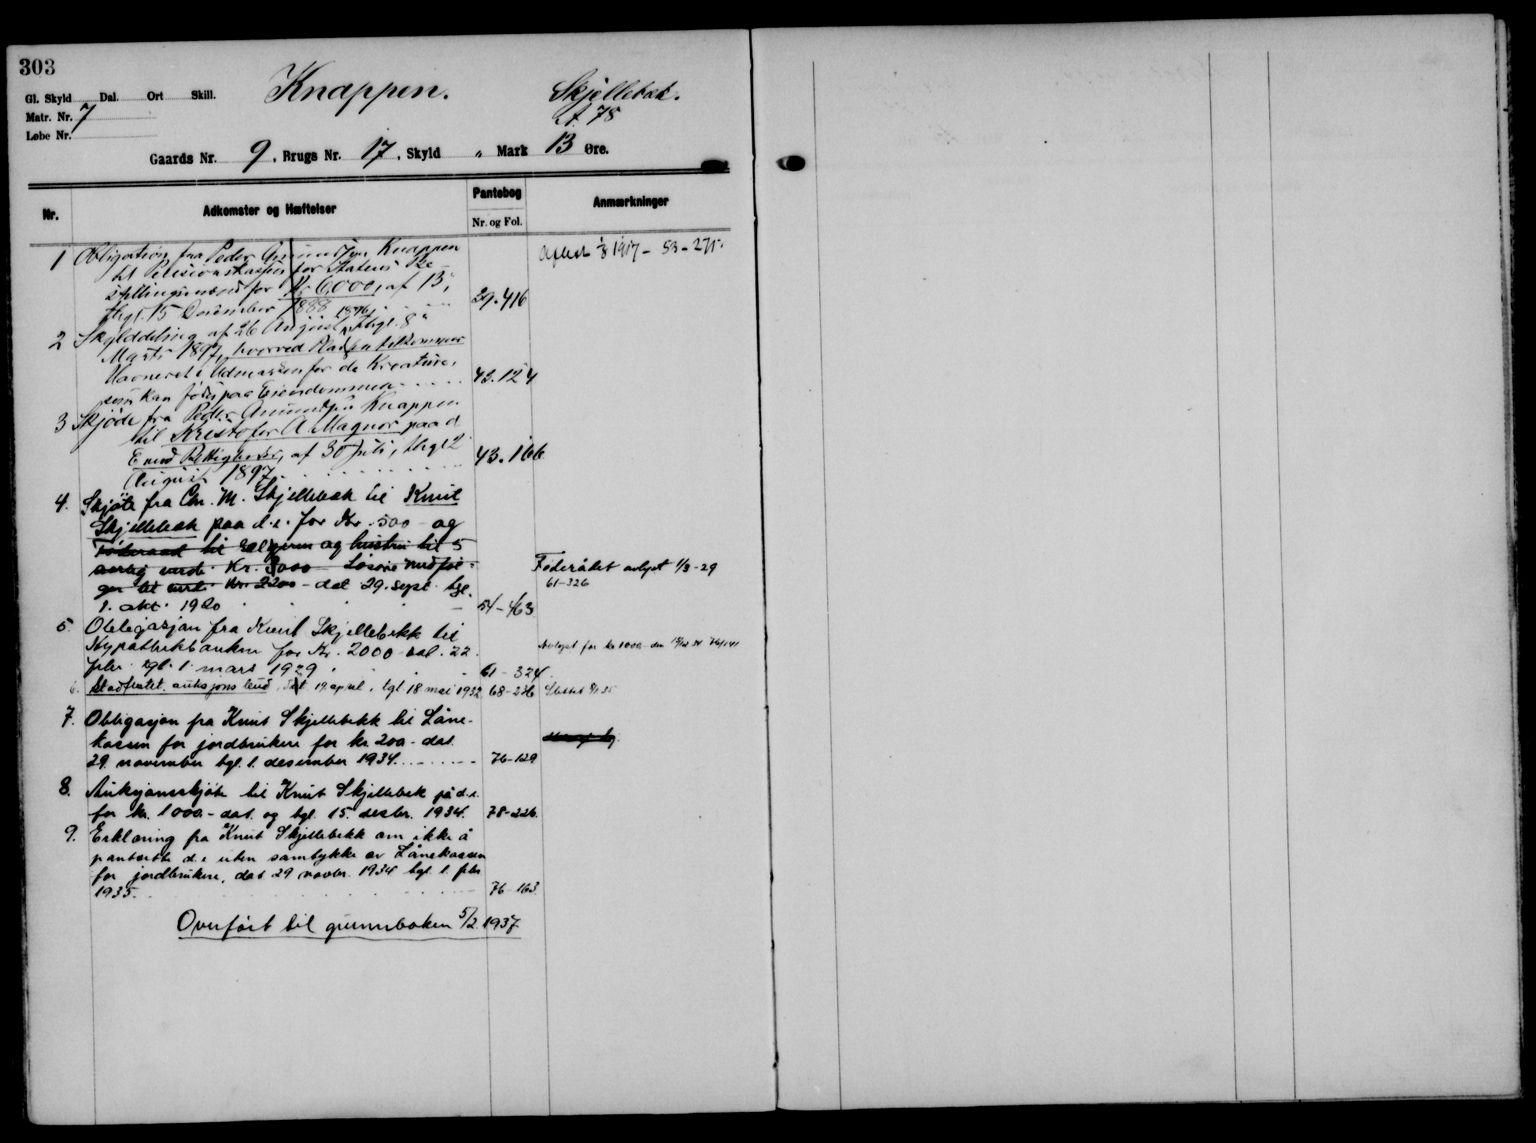 303
Gl. Skyld Dal. Ort Skill.
Knappen.
Skjellebæk.
Matr. Nr. 7
Lt. 78
Løbe Nr.
Gaards Nr. 9, Brugs Nr. 17, Skyld „ Mark 13 Øre.
Nr. Adkomster og Hæftelser Pantebog Nr. og Fol. Anmærkninger
1 Obligation fra Peder Knappen
til Pensionskassen for Statens Be-
for Kr. 6,000, af 13,
thgl. 15 December 1888 29.416
Aflest 1917 - 53 - 271.
2 Skylddeling af 26 August 1896, thgl. 8
Marts 1897, hvorved
Havneret i Udmarken for de Kreature,
som kan fødes paa Eiendommen 43.124
3 Skjøde fra Peder Amundsen Knappen
til Kristofer A Magnor paa d
E med Rettigheder, af 30 Juli, thgl 2
August 1897. 43.166
4. Skjøte fra Chr. M. Skjellebæk til Knut
Skjellebæk paa d.e. for Kr. 500 - og
Føderaad til Selgeren og hustru til 5
aarlig verdi Kr. 3000 Løsøre medføl-
ger til verdi Kr. 2200 - dat 29. sept. tgl.
1. okt. 1920 54 - 463
Føderådet avlyst 1/3 - 29
61 - 326
5. Obligasjon fra Knut Skjellebekk til
Hypotekbanken for Kr. 2000 - dat. 22.
febr. tgl. 1. mars 1929 61 - 324
Avlyst for kr 1000
6. Stadfestet auksjons bud, dat 19. april, tgl 18 mai 1932 68 - 226 Slettet
7. Obligasjon fra Knut Skjellebekk til Låne-
kassen for jordbrukere for kr. 200 - dat.
29. november tgl. 1. desember 1934. 76 - 129
8. Auksjonsskjøte til Knut Skjellebek på d.e.
for kr. 1000. - dat. og tgl. 15. desbr. 1934. 78 - 226.
9. Erklæring fra Knut Skjellebekk om ikke å
pantsette d.e uten samtykke av Lånekassen
for jordbrukere, dat 29 novbr. 1934 tgl. 1. febr
1935. 76 - 163
Overført til grunnboken 5/2 1937